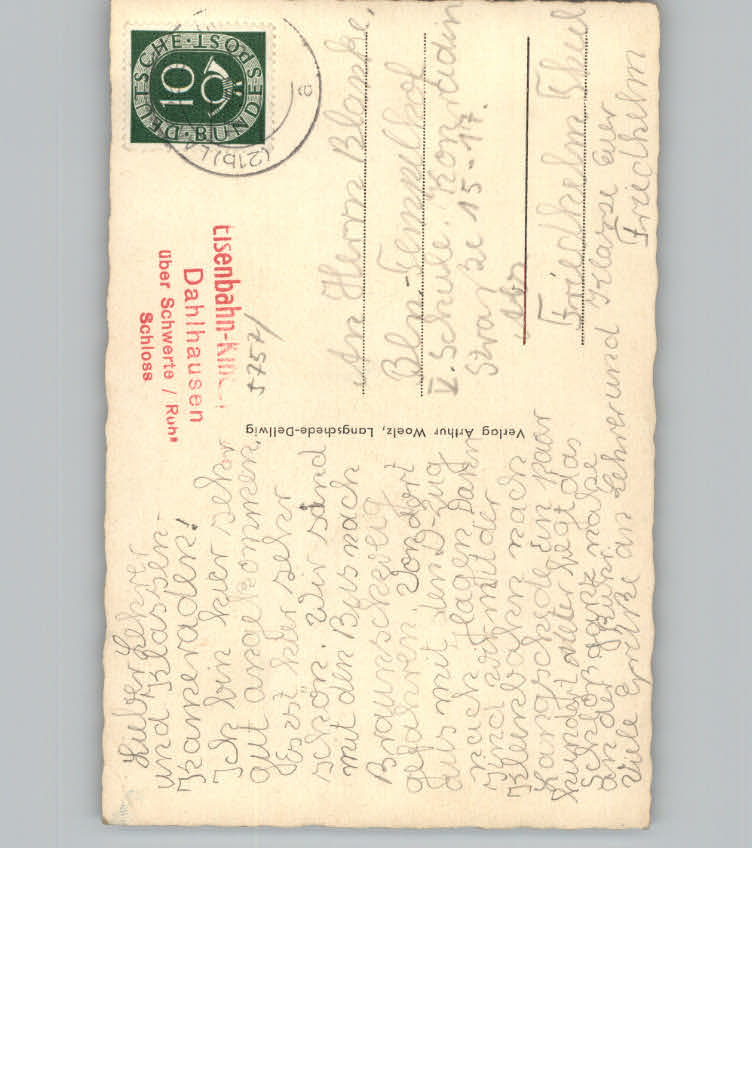 Lieber Lehrer
und Klassen-
kameraden!
Ich bin hier sehr
gut angekommen.
Es ist hier sehr
schön. Wir sind
mit den Bus nach
Braunschweig
gefahren. Von dort
aus mit den D-Zug
nach Hagen. Dann
sind wir mit der
Kleinbahn nach
Langschede ein paar
hundert Meter liegt das
Schloß ganz nahe
an der Ruhr.
Viele Grüße an Lehrer und Klasse euer
Friedhelm
Verlag Arthur Woelz, Langschede-Dellwig
Eisenbahn-
Dahlhausen
über Schwerte / Ruhr
Schloss
5757/
DEUTSCHE·BUNDESPOST
10
(21b) LA
a
An Herrn Blanke.
Bln-Tempelhof
V. Schule.
Straße 15-17.
Abs
Friedhelm